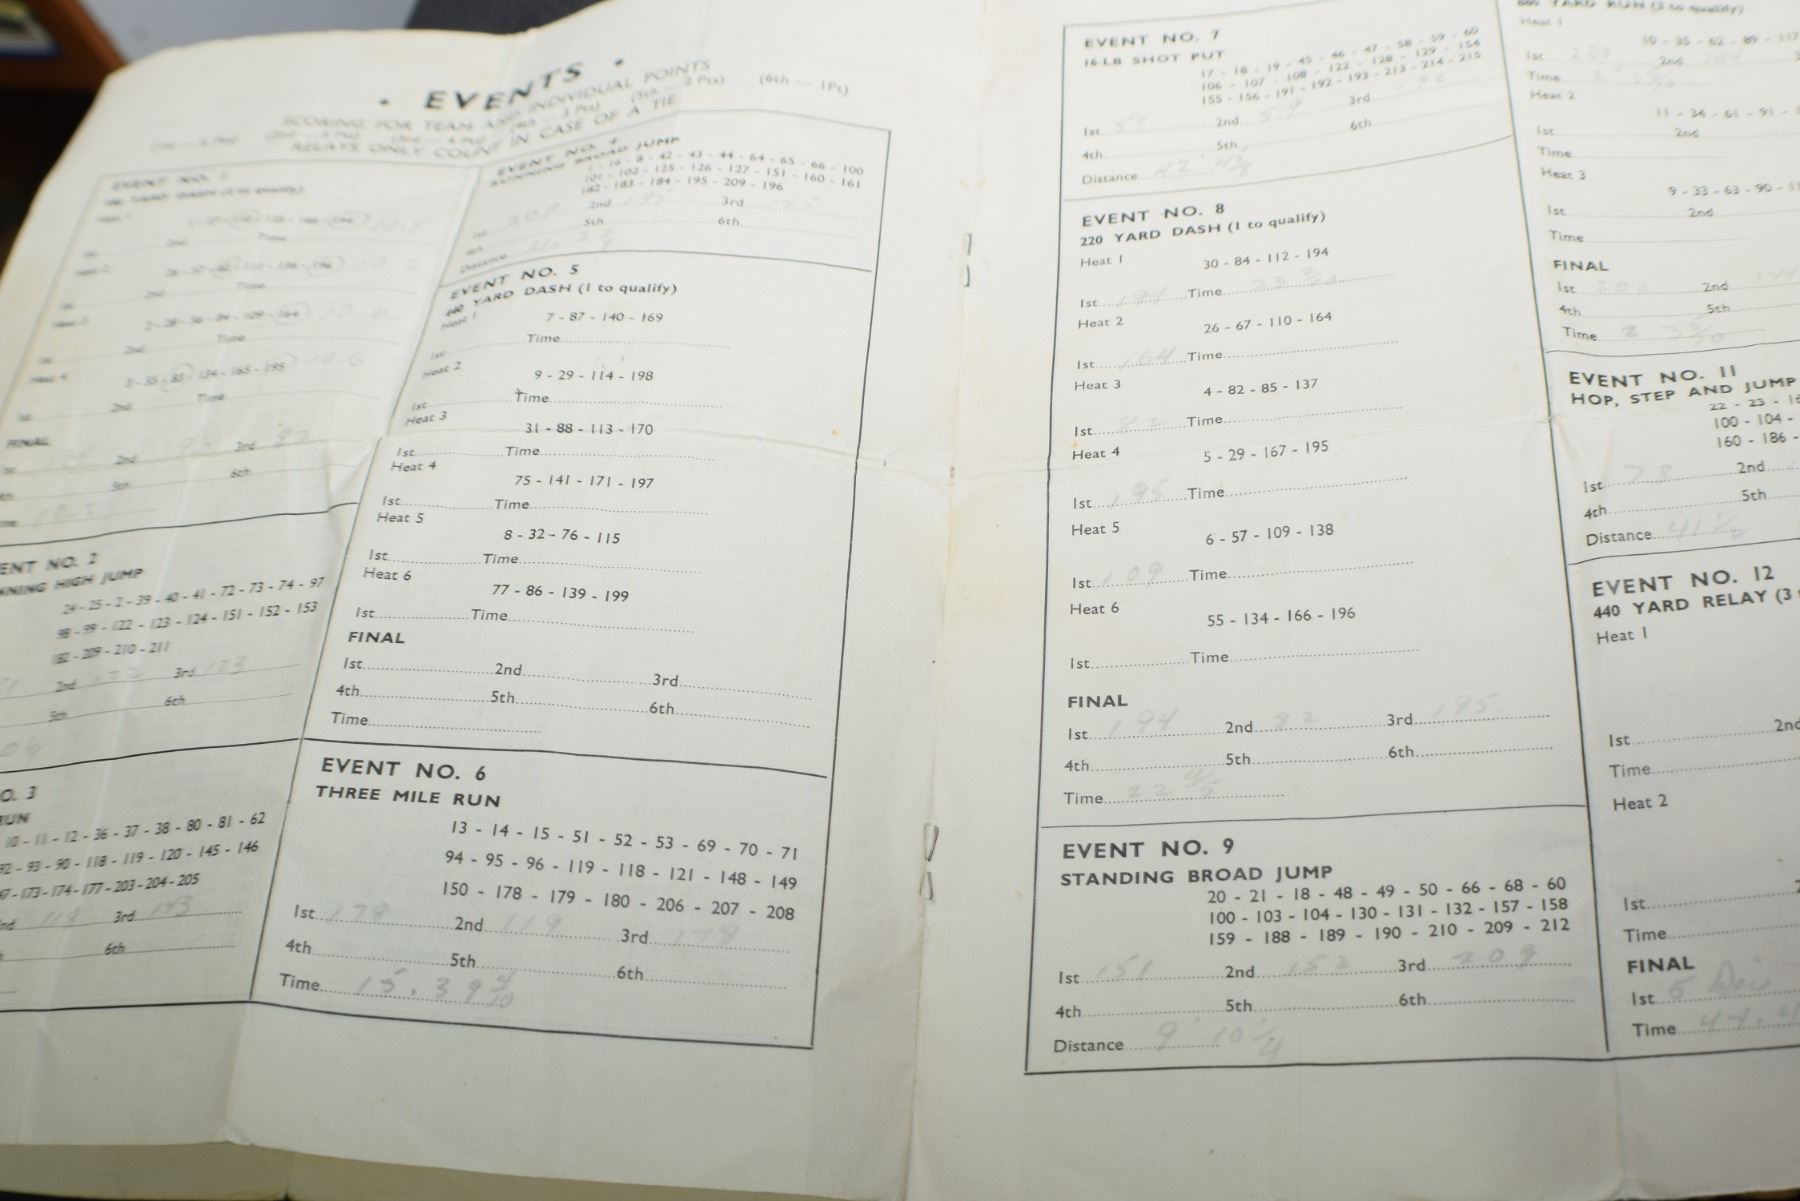 • EVENTS •
SCORING FOR TEAM AND INDIVIDUAL POINTS
(5th — 2 Pts) (6th — 1Pt)
RELAYS ONLY COUNT IN CASE OF A TIE
EVENT NO. 1
YARD DASH (2 to qualify)
Heat 1
1st 2nd Time
Heat 2
1st 2nd Time
Heat 3
2 - 28 - 56 - 84 - 109 - 164
1st 2nd Time
Heat 4
3 - 55 - 83 - 134 - 165 - 195 10.6
1st 2nd Time
FINAL
2nd 3rd 82
5th 6th
EVENT NO. 2
RUNNING HIGH JUMP
24 - 25 - 2 - 39 - 40 - 41 - 72 - 73 - 74 - 97
98 - 99 - 122 - 123 - 124 - 151 - 152 - 153
182 - 209 - 210 - 211
2nd 122 3rd 123
5th 6th
NO. 3
RUN
10 - 11 - 12 - 36 - 37 - 38 - 80 - 81 - 62
92 - 93 - 90 - 118 - 119 - 120 - 145 - 146
173 - 174 - 177 - 203 - 204 - 205
2nd 118 3rd
6th
EVENT NO. 4
RUNNING BROAD JUMP
1 - 16 - 8 - 42 - 43 - 44 - 64 - 65 - 66 - 100
101 - 102 - 125 - 126 - 127 - 151 - 160 - 161
182 - 183 - 184 - 195 - 209 - 196
1st 209 2nd 195 3rd 125
4th 5th 6th
Distance
EVENT NO. 5
440 YARD DASH (1 to qualify)
Heat 1
7 - 87 - 140 - 169
1st Time
Heat 2
9 - 29 - 114 - 198
1st Time
Heat 3
31 - 88 - 113 - 170
1st Time
Heat 4
75 - 141 - 171 - 197
1st Time
Heat 5
8 - 32 - 76 - 115
1st Time
Heat 6
77 - 86 - 139 - 199
1st Time
FINAL
1st 2nd 3rd
4th 5th 6th
Time
EVENT NO. 6
THREE MILE RUN
13 - 14 - 15 - 51 - 52 - 53 - 69 - 70 - 71
94 - 95 - 96 - 119 - 118 - 121 - 148 - 149
150 - 178 - 179 - 180 - 206 - 207 - 208
1st 2nd 119 3rd
4th 5th 6th
Time 15.39 4/10
EVENT NO. 7
16-LB SHOT PUT
17 - 18 - 19 - 45 - 46 - 47 - 58 - 59 - 60
106 - 107 - 108 - 122 - 128 - 129 - 154
155 - 156 - 191 - 192 - 193 - 213 - 214 - 215
1st 58 2nd 59 3rd 192
4th 5th 6th
Distance
EVENT NO. 8
220 YARD DASH (1 to qualify)
Heat 1
30 - 84 - 112 - 194
1st 194 Time
Heat 2
26 - 67 - 110 - 164
1st 164 Time
Heat 3
4 - 82 - 85 - 137
1st 82 Time
Heat 4
5 - 29 - 167 - 195
1st 195 Time
Heat 5
6 - 57 - 109 - 138
1st 109 Time
Heat 6
55 - 134 - 166 - 196
1st Time
FINAL
1st 194 2nd 82 3rd 195
4th 5th 6th
Time 22 4/5
EVENT NO. 9
STANDING BROAD JUMP
20 - 21 - 18 - 48 - 49 - 50 - 66 - 68 - 60
100 - 103 - 104 - 130 - 131 - 132 - 157 - 158
159 - 188 - 189 - 190 - 210 - 209 - 212
1st 151 2nd 152 3rd 209
4th 5th 6th
Distance 9' 10 1/4
880 YARD RUN (2 to qualify)
Heat 1
10 - 35 - 62 - 89 - 117
1st 200 2nd 144
Time
Heat 2
11 - 34 - 61 - 91 -
1st 2nd
Time
Heat 3
9 - 33 - 63 - 90 -
1st 2nd
Time
FINAL
1st 200 2nd 144
4th 5th
Time
EVENT NO. 11
HOP, STEP AND JUMP
22 - 23 -
100 - 104 -
160 - 186 -
1st 78 2nd
4th 5th
Distance
EVENT NO. 12
440 YARD RELAY (3
Heat 1
1st 2nd
Time
Heat 2
1st
Time
FINAL
1st 5 Div
Time 44.4